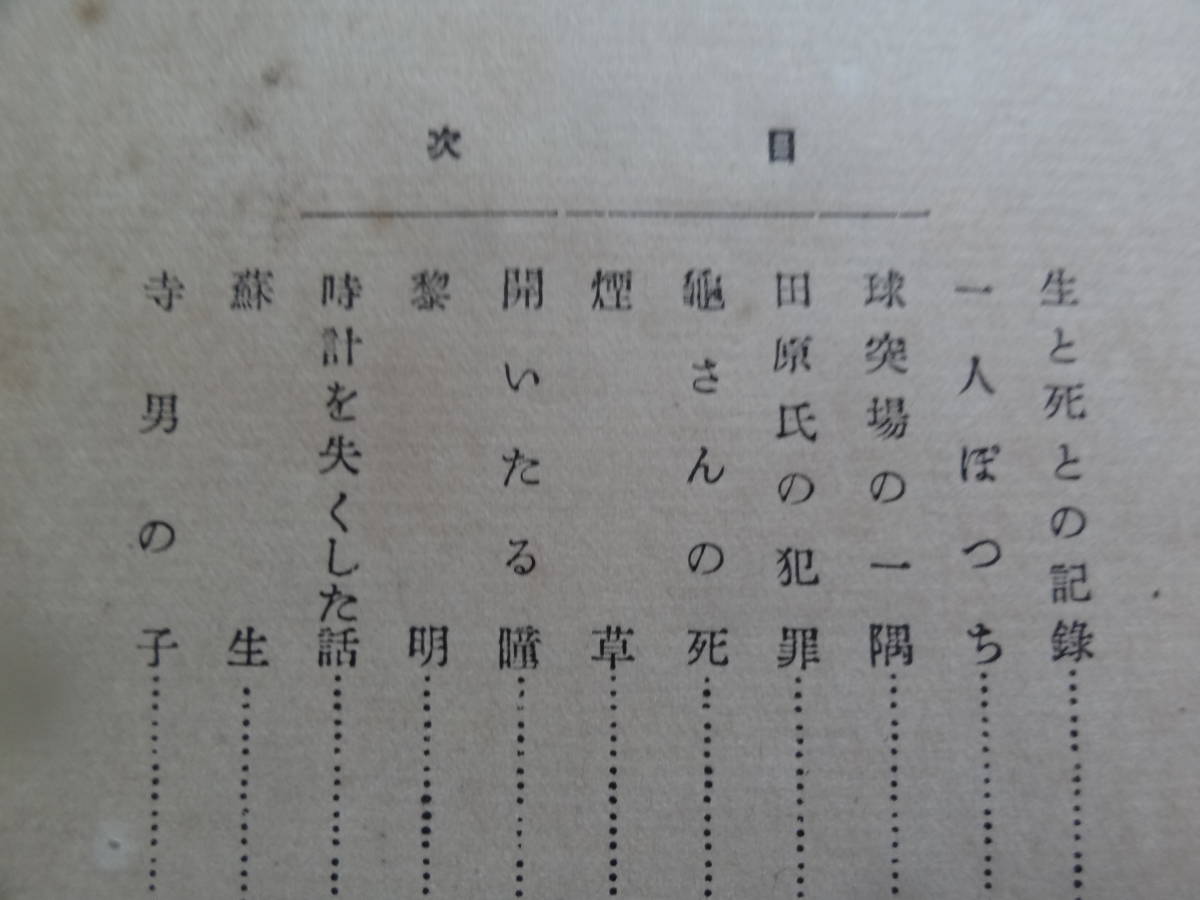 目次
生と死との記錄……………
一人ぽつち……………
球突場の一隅……………
田原氏の犯罪……………
龜さんの死……………
煙草……………
開いたる瞳……………
黎明……………
時計を失くした話……………
蘇生……………
寺男の子……………